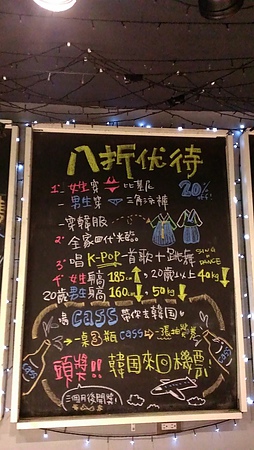 八折优待
1. 女生穿 比基尼
20% off!
- 男生穿 三角泳褲
- 穿韓服
2. 全家四代光臨
3. 唱K-POP一首歌+跳舞 SING & DANCE
4. 女生身高185↑, 20歲以上40kg↓
20歲男生身高160↓, 50kg↓
喝CASS帶你去韓國
→一桌3瓶CASS→一張抽獎券
CASS
CASS
頭獎!! 韓国來回機票!
三個月後開獎!